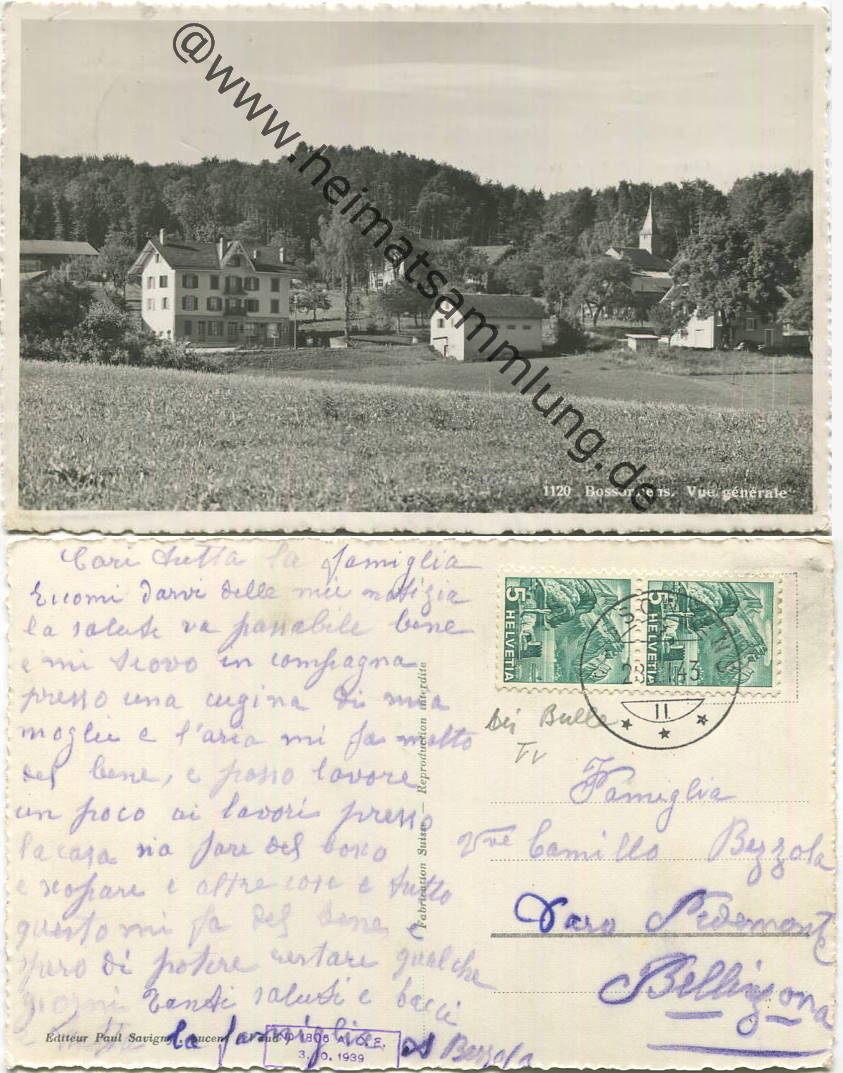 @www.heimatsammlung.de
1120 Bossonnens. Vue générale
Cari tutta la famiglia
Eccomi darvi delle mie notizia
la salute va passabile bene
e mi trovo in compagna
presso una cugina di mia
moglie e l'aria mi fa molto
del bene, e posso lavore
un poco ai lavori presso
la casa sia fare del bosco
e scopare e altre cose e tutto
questo mi fa del bene e
spero di potere restare qualche
giorni Tanti saluti e bacci
la famiglia
A Bezzola
Editeur Paul Savigny, Lucens (Vaud)
No 1806 A. C. F.
3.10.1939
Fabrication Suisse — Reproduction interdite
5 HELVETIA
5 HELVETIA
II
bei Bulle
Famiglia
Vve Camillo Bezzola
Daro Pedemonte
Bellinzona